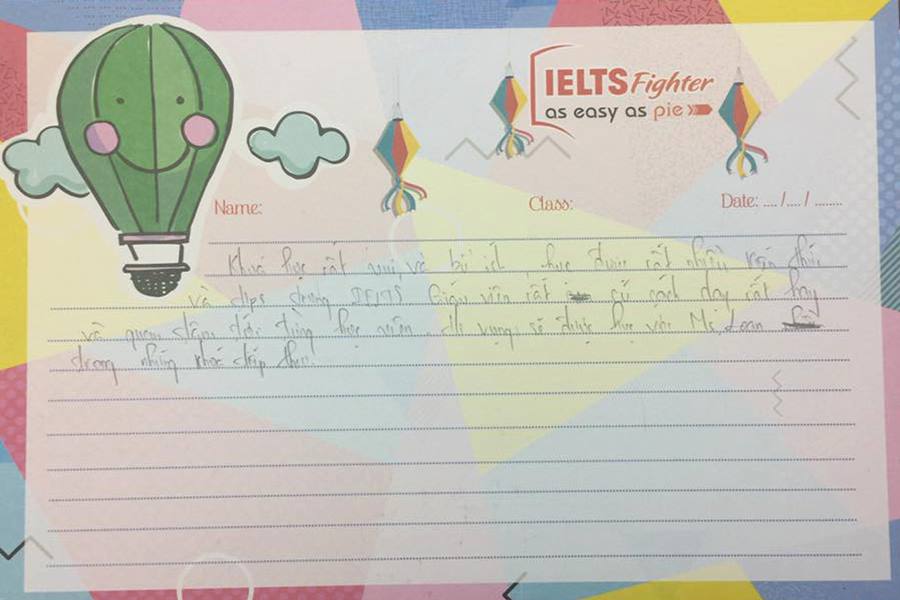 IELTS Fighter
as easy as pie
Name:
Class:
Date: .... /.... / ........
Khoá học rất vui và bổ ích, học được rất nhiều kiến thức
và tips trong IELTS Giáo viên rất có cách dạy rất hay
và quan tâm đến từng học viên. Hi vọng sẽ được học với Ms Loan
trong những khoá tiếp theo.